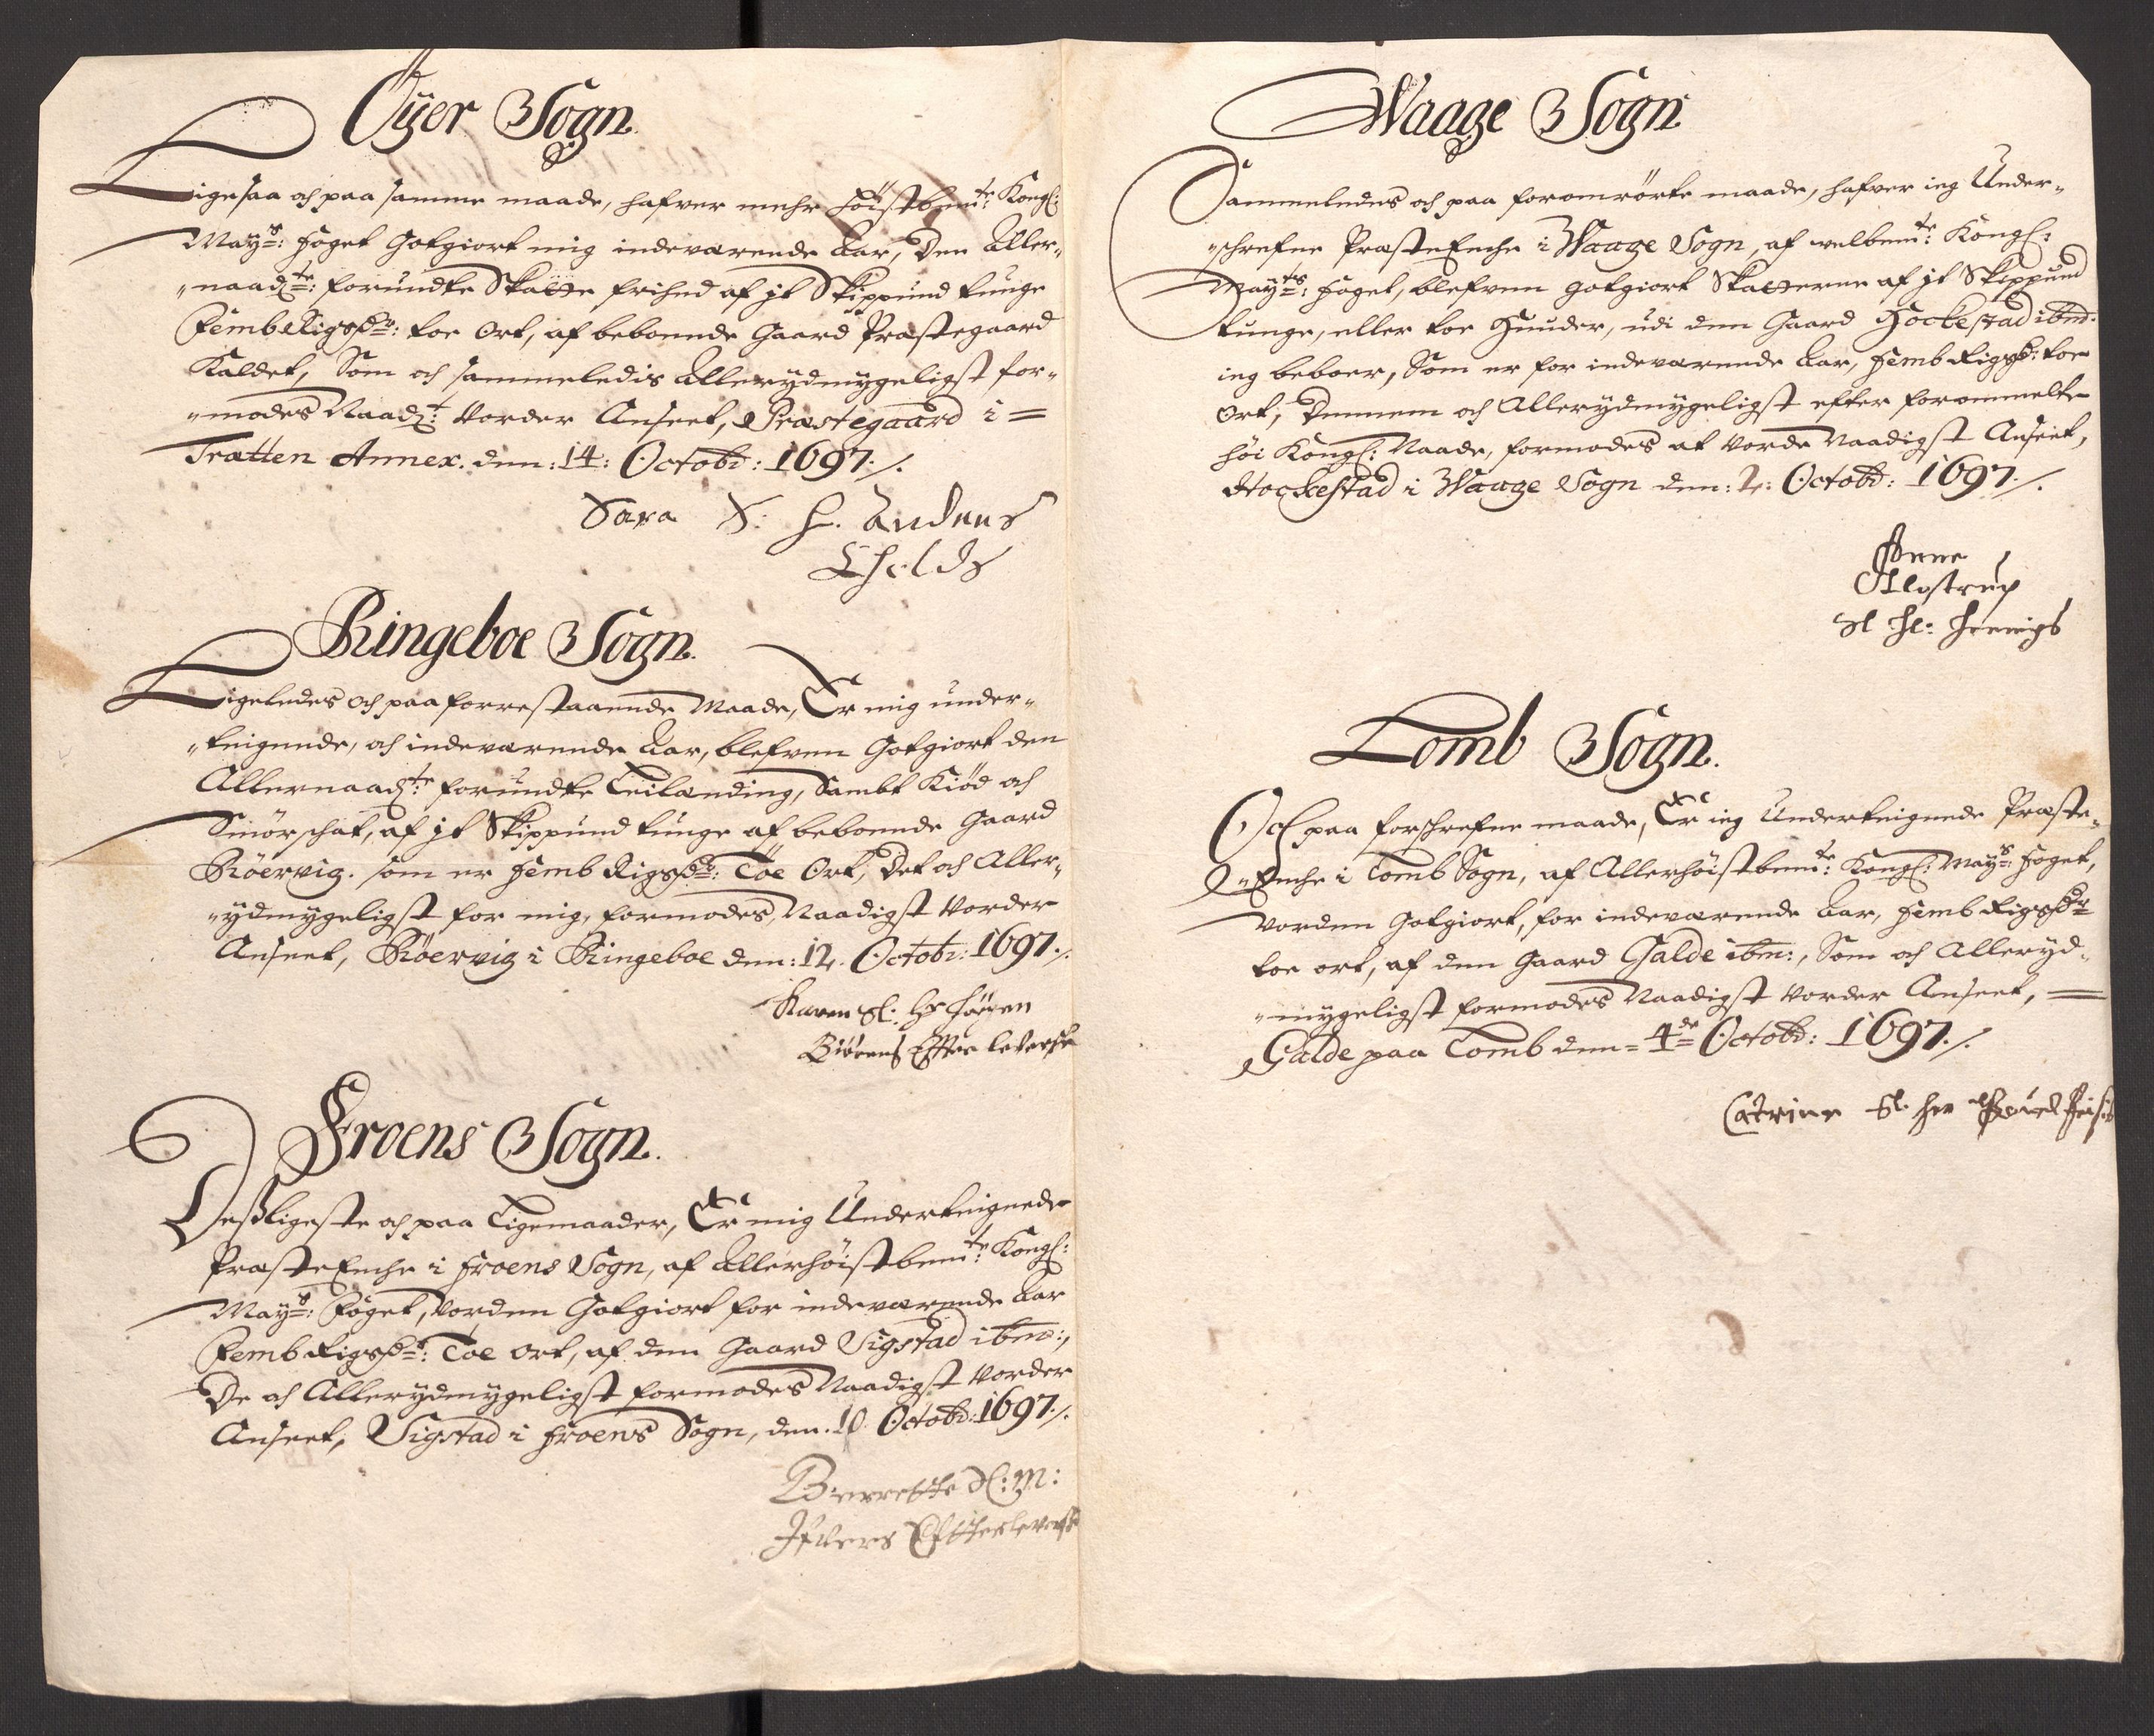 Öyer Sogn.
Ligesaa och paa samme maade, hafver mehr höistbemte: Kongl:
Mays: Foget Gotgiort mig indeværende Aar, Den Aller-
"naadte: forundte Skatte frihed af jt Skippund tunge
Femb Rigsdr: toe Ort, af beboende Gaard Præstegaard
Kaldet, Som och sammeledis Allerydmygeligst for-
"modes Naadt: Vorder Anseet, Præstegaard i =
Tratten Annex. den: 14: Octobr: 1697./.
Sara S: H. Anders
Ringeboe Sogn.
Ligeledes och paa forrestaaende Maade, Er mig under-
"teignende, och indeværende Aar, blefven Gotgiort den
Allernaadte: forundte Leilænding, Sambt Kiød och
Smörschat, af jt Skippund tunge af beboende Gaard
Röervig. som er Femb Rigsdr: Toe Ort, Det och Aller-
"ydmygeligst for mig, formodes Naadigst Vorder
Anseet, Röervig i Ringeboe den: 12. Octobr: 1697./.
Karen Sl: Hr Jörgen
Biörens Effterleverske
Froens Sogn.
Desligeste och paa Ligemaader, Er mig Underteignede
Præste Enche i Froens Sogn, af Allerhöistbemte: Kongl:
Mays: Foget, Vorden Gotgiort for indeværende Aar
Femb Rigsdr: Toe Ort, af den Gaard Sigstad ibm:,
De och Allerydmygeligst formodes Naadigst Vorder
Anseet, Sigstad i Froens Sogn, den. 10. Octobr: 1697./.
Berrette Sl: M:
Ifvers Efterleverske
Waage Sogn
Sammeledes och paa foromrörte maade, hafver ieg Under-
"schrefne Præste Enche i Waage Sogn, af welbemte: Kongl:
Mayts: Foget, blefven gotgiort Skatterne af jt Skippund
tunge, eller toe Huuder, udi den Gaard Hockestad ibm:
ieg beboer, Som er for indeværende Aar, Femb Rigsdr: toe
Ort, Dennem och Allerydmygeligst efter forommelte
höi Kongl: Naade, formodes at Vorde Naadigst Anseet,
Hockestad i Waage Sogn den: 2: Octobr: 1697./.
Anne
Alostrup
Sl Hr: Hennigs
Lomb Sogn.
Och paa forschrefne maade, Er ieg Underteignede Præste-
"Enche i Lomb Sogn, af Allerhöistbemte: Kongl: Mays: Foget,
Vorden Gotgiort, for indeværende Aar, Femb Rigsdr
toe ort, af den Gaard Galde ibm:, Som och Alleryd-
"mygeligst formodes Naadigst Vorder Anseet, =
Galde paa Lomb den = 4de Octobr: 1697./.
Catrine Sl. Her Povel